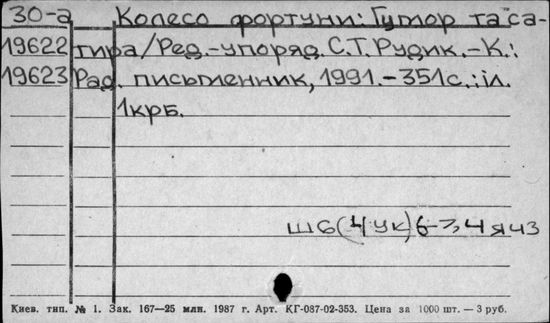 30-а Колесо фортуни: Гумор та са-
19622 тира/Ред.-упоряд. С.Т.Рудик.-К.:
19623 Рад. письменник, 1991.-351с.:іл.
1крб.
Ш6(4Ук)6-7,4я43
Киев. тип. № 1. Зак. 167—25 млн. 1987 г. Арт. КГ-087-02-353. Цена за 1000 шт. — 3 руб.